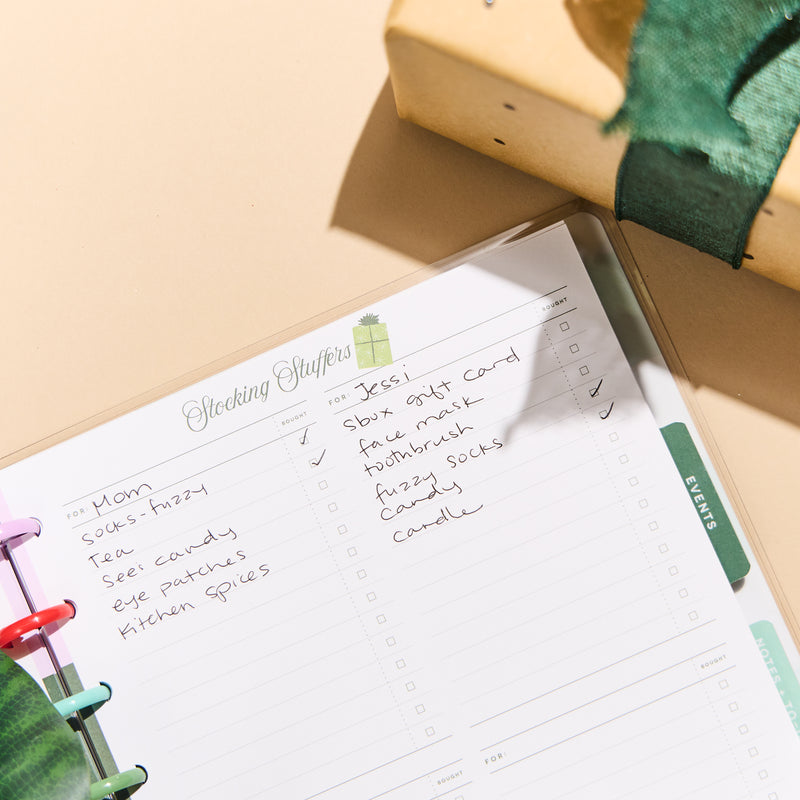 Stocking Stuffers
BOUGHT
FOR: Mom
socks-fuzzy
Tea
Sees candy
eye patches
Kitchen spices
BOUGHT
FOR: Jessi
Sbux gift card
face mask
toothbrush
fuzzy socks
candy
candle
BOUGHT
BOUGHT
FOR:
EVENTS
NOTES + TO-